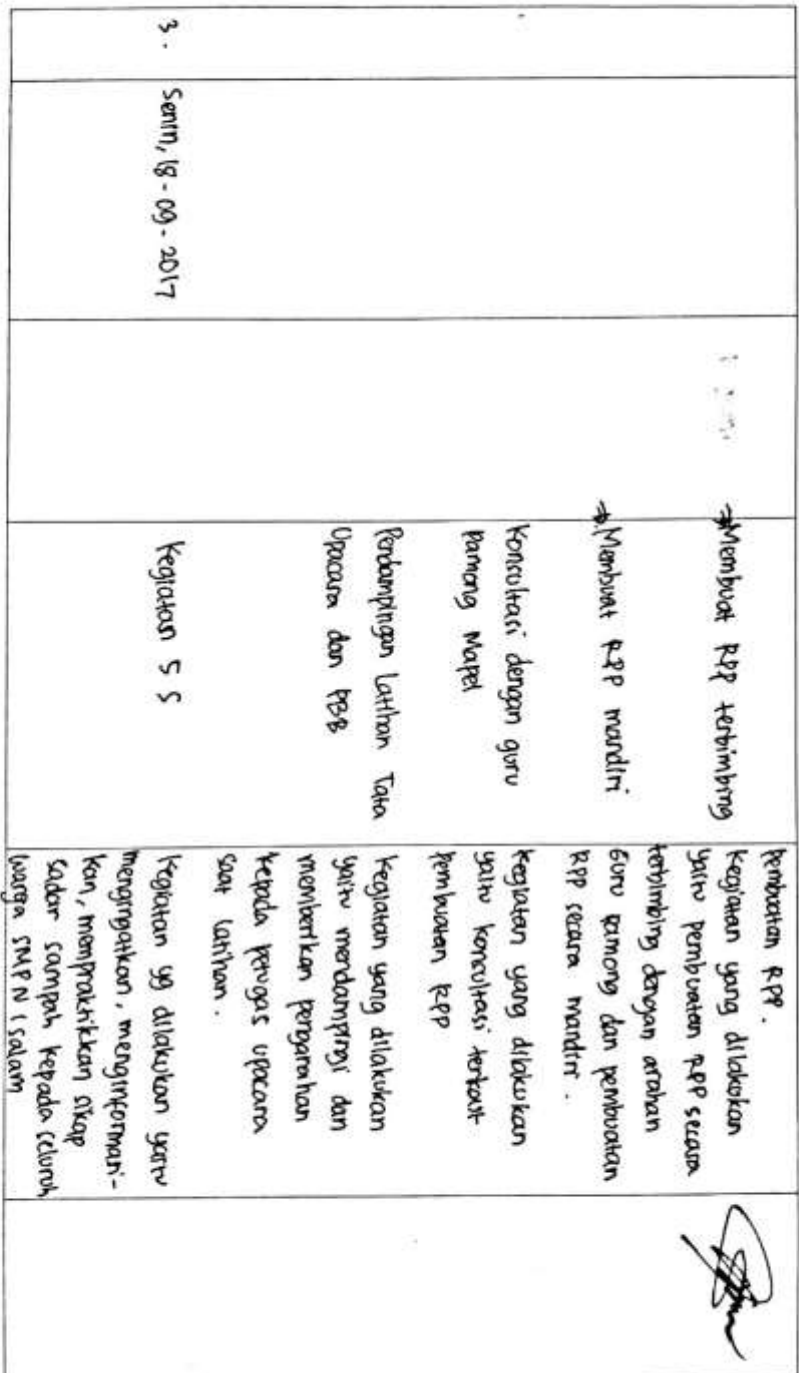 pembuatan RPP.
→ Membuat RPP terbimbing
Kegiatan yang dilakukan
yaitu pembuatan RPP secara
terbimbing dengan arahan
Guru pamong dan pembuatan
RPP secara mandiri.
→ Membuat RPP mandiri
Konsultasi dengan guru
pamong Mapel
Kegiatan yang dilakukan
yaitu konsultasi terkait
pembuatan RPP
Pendampingan Latihan Tata
Upacara dan PBB
Kegiatan yang dilakukan
yaitu mendampingi dan
memberikan pengarahan
kepada petugas upacara
saat latihan.
3.
Senin, 18-09-2017
Kegiatan 5 S
Kegiatan yg dilakukan yaitu
mengingatkan, menginformasi-
kan, mempraktikkan sikap
sadar sampah kepada seluruh
warga SMP N 1 Salam